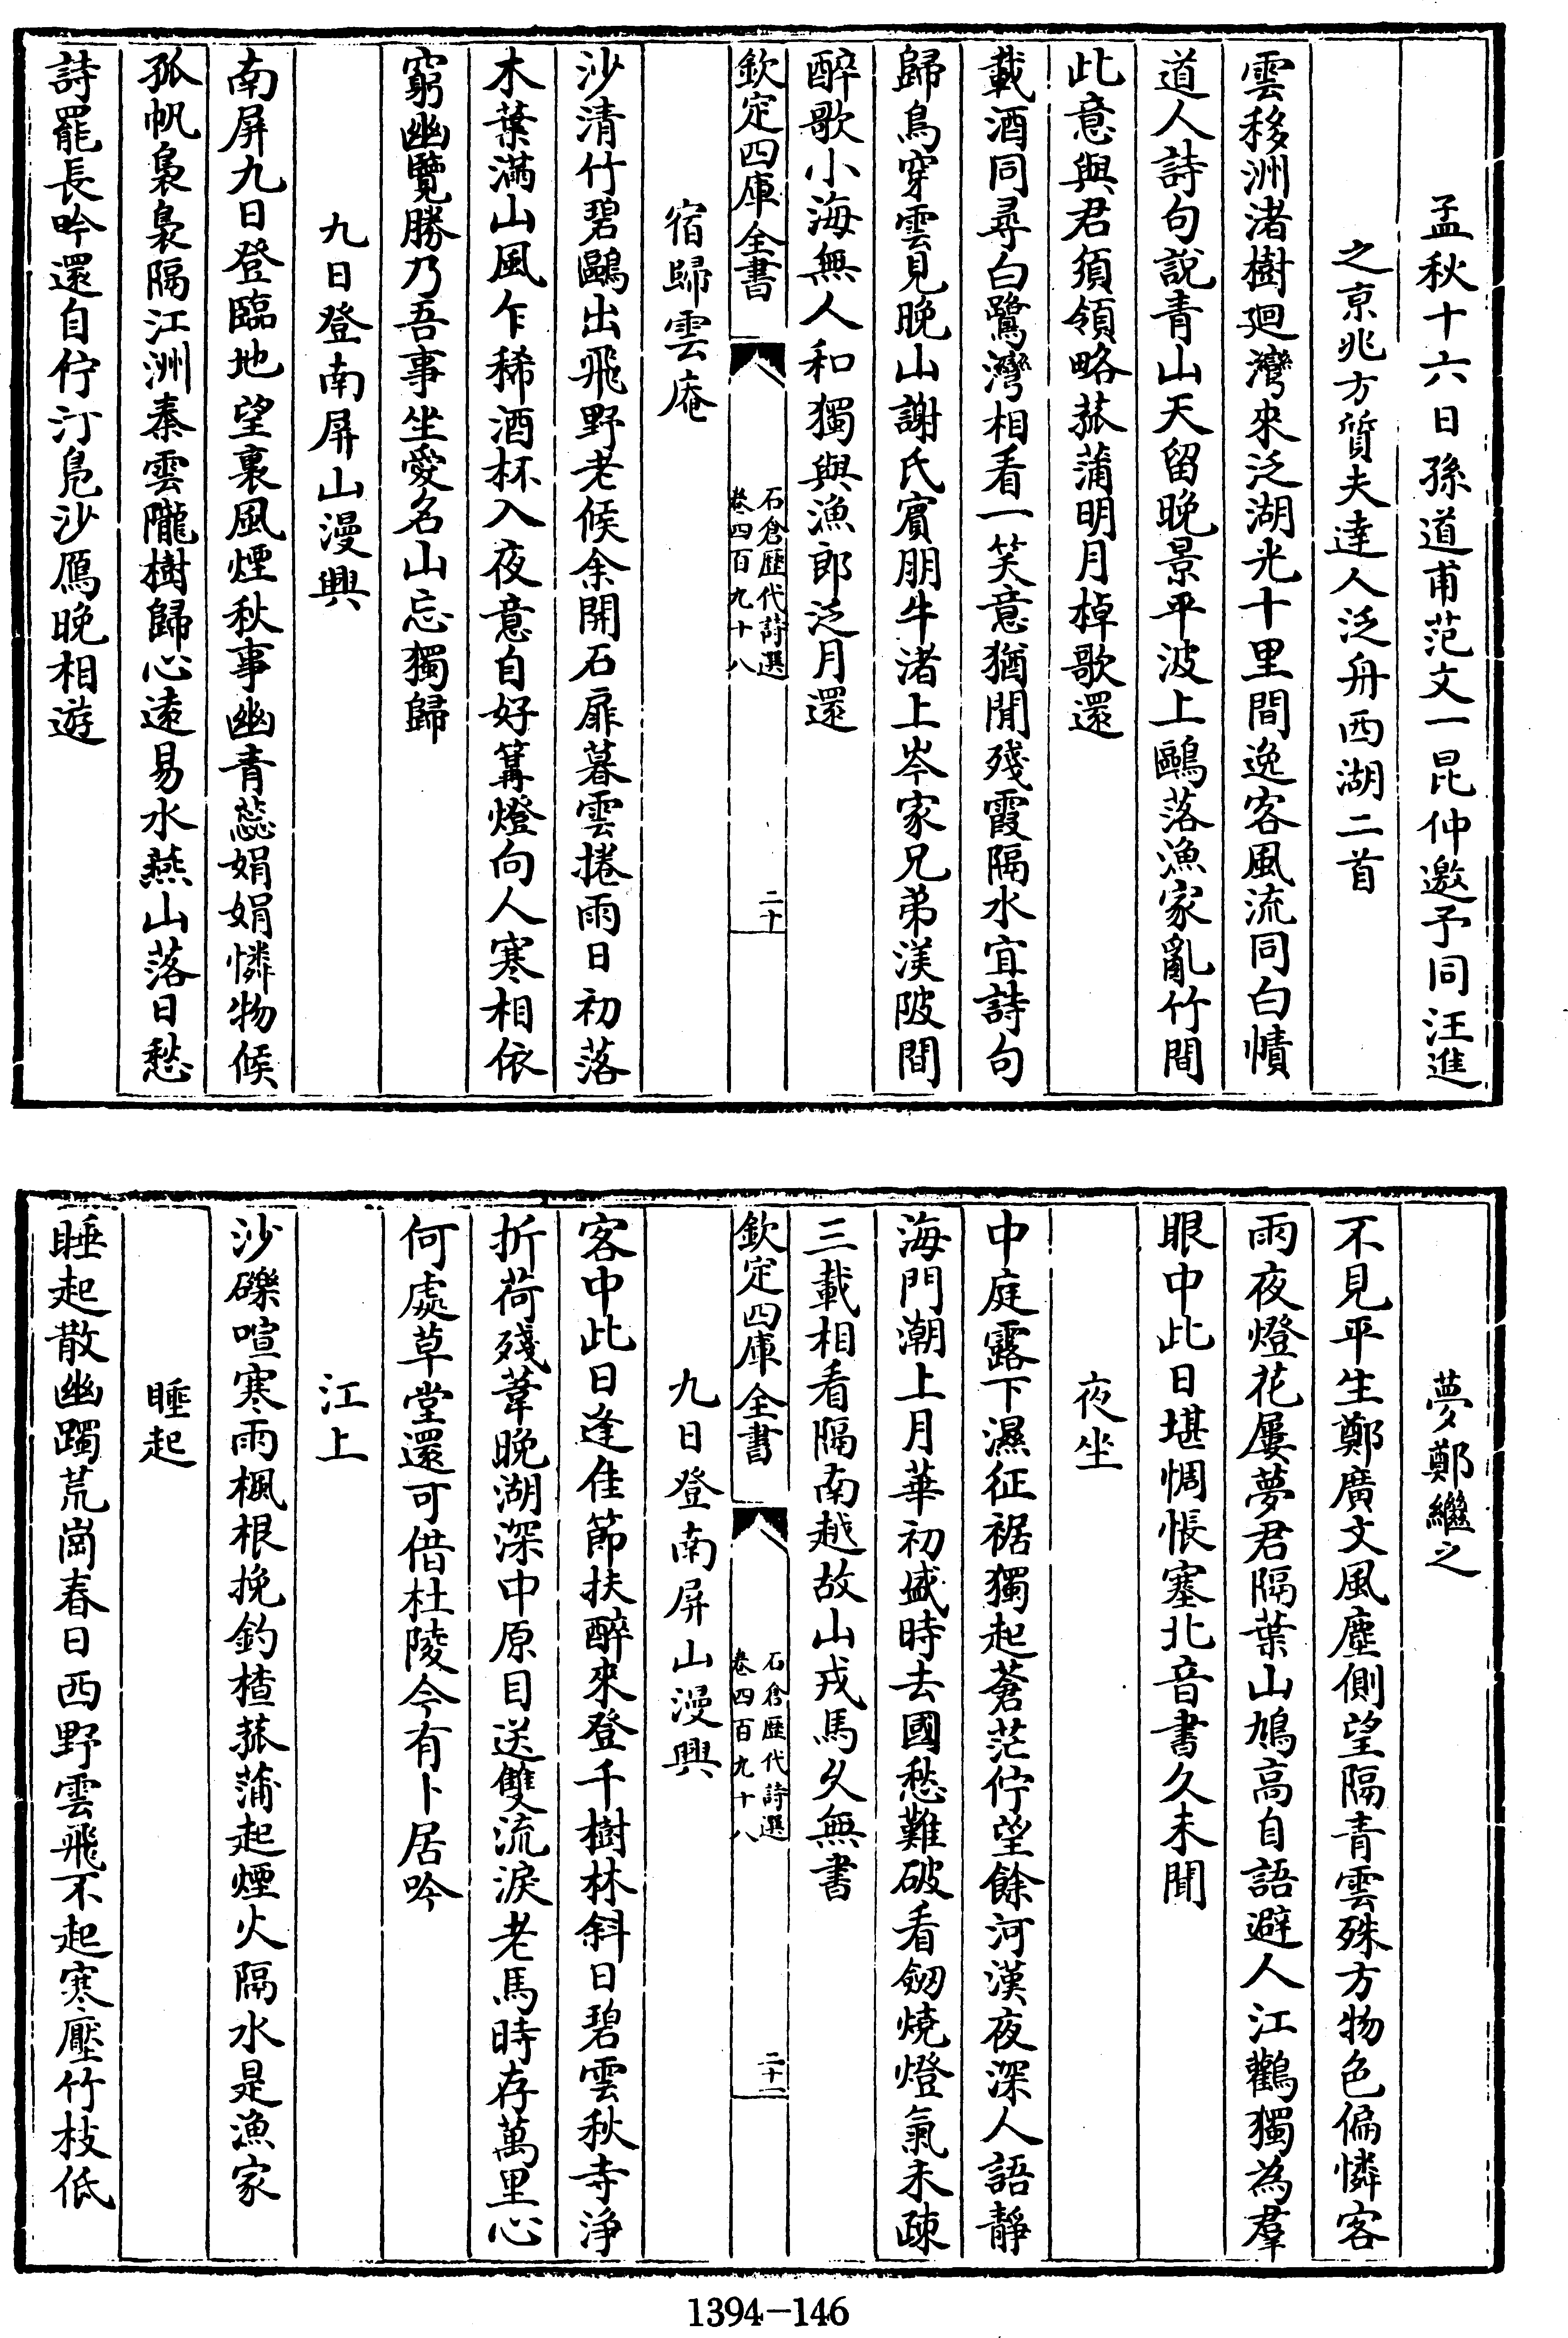 孟秋十六日孫道甫范文一昆仲邀予同汪進
之京兆方質夫達人泛舟西湖二首
雲移洲渚樹廻灣來泛湖光十里間逸客風流同白幘
道人詩句說青山天留晚景平波上鷗落漁家亂竹間
此意與君須領略菰蒲明月棹歌還
載酒同尋白鷺灣相看一笑意猶閒殘霞隔水宜詩句
歸鳥穿雲見晚山謝氏賓朋牛渚上岑家兄弟渼陂間
醉歌小海無人和獨與漁郎泛月還
欽定四庫全書
石倉歷代詩選
卷四百九十八
二十
宿歸雲庵
沙清竹碧鷗出飛野老候余開石扉暮雲捲雨日初落
木葉滿山風乍稀酒杯入夜意自好篝燈向人寒相依
窮幽覽勝乃吾事坐愛名山忘獨歸
九日登南屏山漫興
南屏九日登臨地望裏風煙秋事幽青蕊娟娟憐物候
孤帆裊裊隔江洲秦雲隴樹歸心遠易水燕山落日愁
詩罷長吟還自佇汀鳧沙鴈晚相遊
夢鄭繼之
不見平生鄭廣文風塵側望隔青雲殊方物色偏憐客
雨夜燈花屢夢君隔葉山鳩高自語避人江鸛獨為羣
眼中此日堪惆悵塞北音書久未聞
夜坐
中庭露下濕征裾獨起蒼茫佇望餘河漢夜深人語靜
海門潮上月華初盛時去國愁難破看劒燒燈氣未疎
三載相看隔南越故山戎馬久無書
欽定四庫全書
石倉歷代詩選
卷四百九十八
二十一
九日登南屏山漫興
客中此日逢佳節扶醉來登千樹林斜日碧雲秋寺淨
折荷殘葦晚湖深中原目送雙流淚老馬時存萬里心
何處草堂還可借杜陵今有卜居吟
江上
沙礫喧寒雨楓根挽釣楂菰蒲起煙火隔水是漁家
睡起
睡起散幽躅荒崗春日西野雲飛不起寒壓竹枝低
1394-146